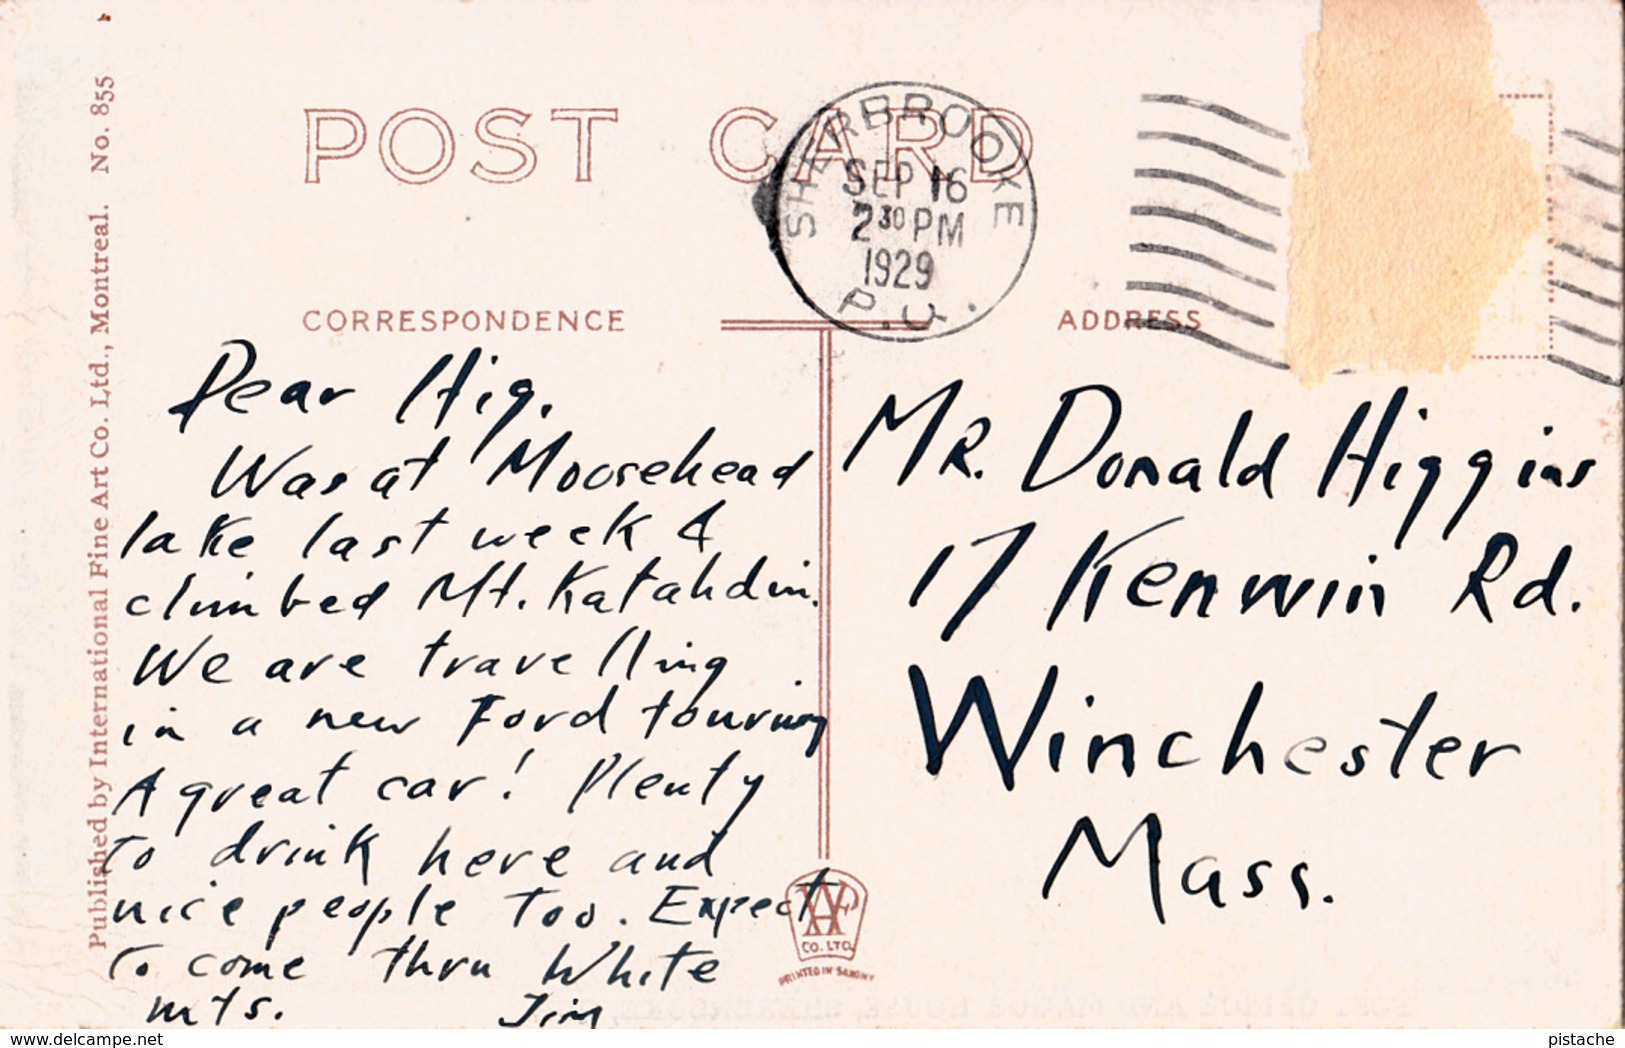 POST CARD
SHERBROOKE
SEP 16
2 30 PM
1929
P.Q.
Published by International Fine Art Co. Ltd., Montreal. No. 855
CORRESPONDENCE
ADDRESS
Dear Hig.
Was at Moosehead
lake last week &
climbed Mt. Katahdin.
We are travelling
in a new Ford touring
A great car! Plenty
to drink here and
nice people too. Expect
to come thru White
mts. Jim
MR. Donald Higgins
17 Kenwin Rd.
Winchester
Mass.
CO. LTD.
PRINTED IN SAXONY
www.delcampe.net
pistache